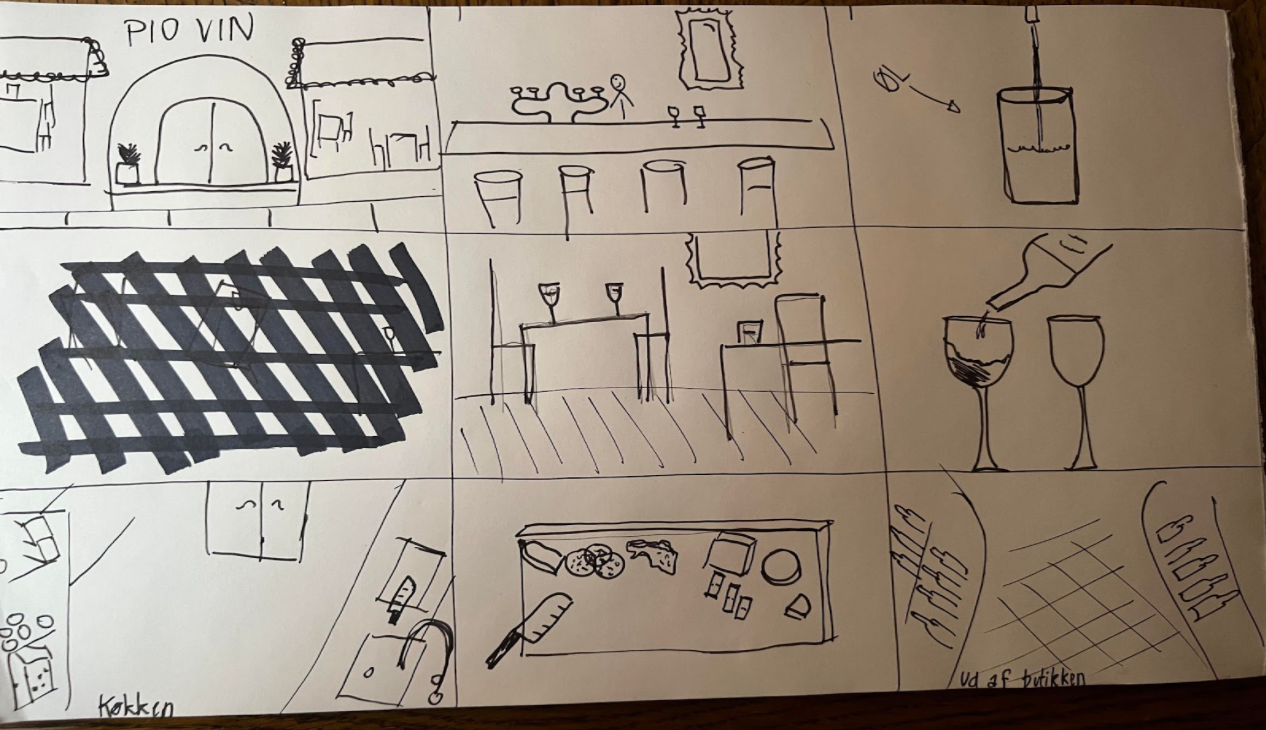 PIO VIN
ØL
Køkken
Ud af butikken